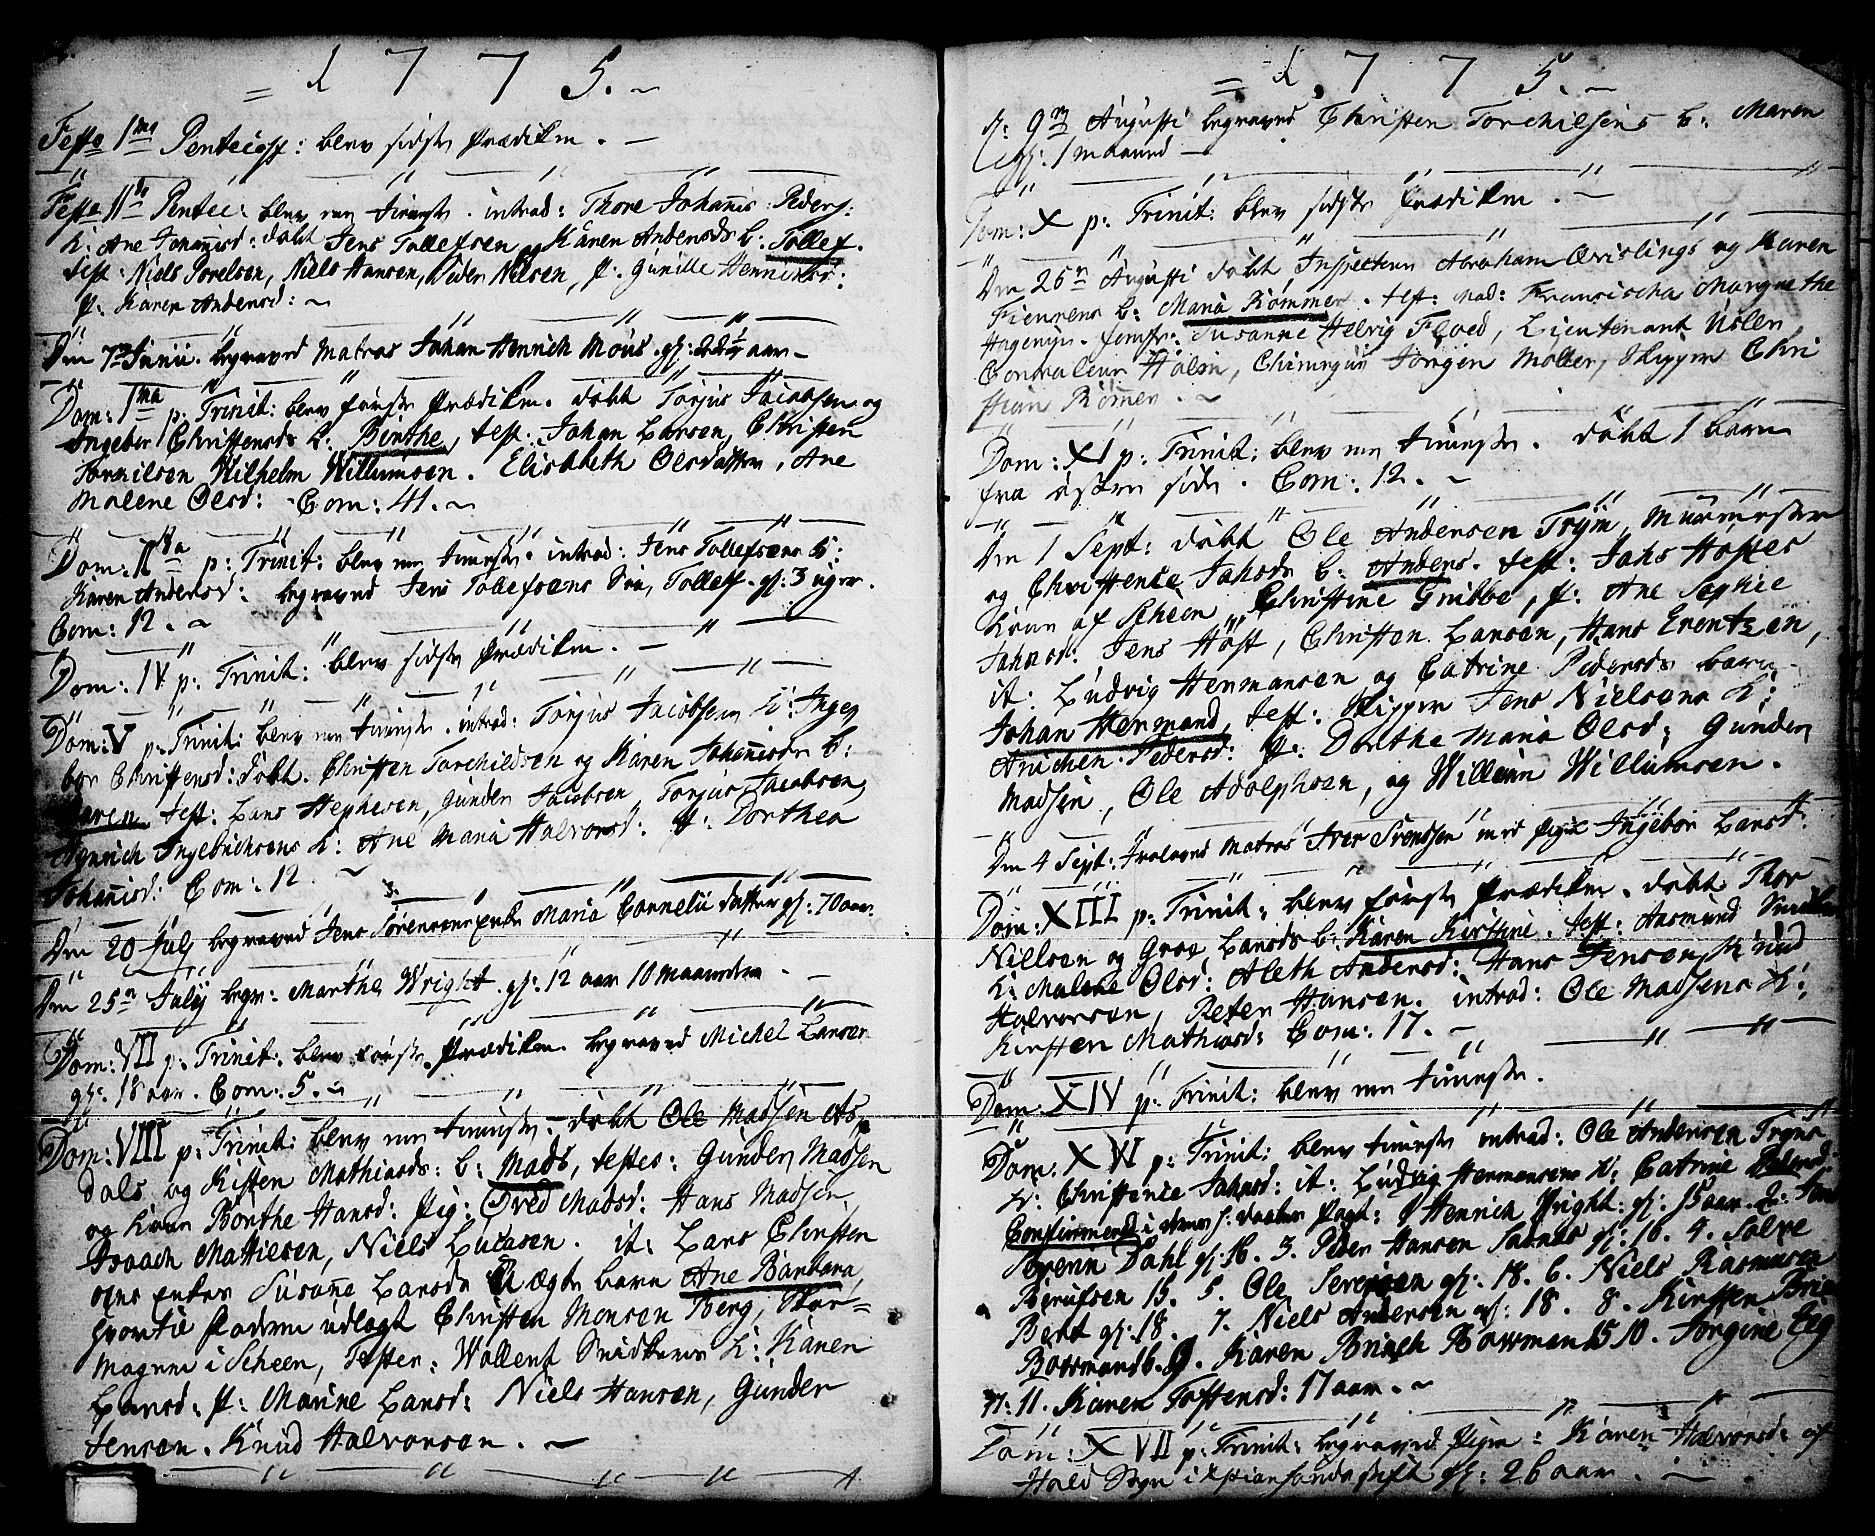 = 1 7 7 5. ~
Festo 1ma Pentecost: blev sidste Prædiken. —
Festo IIda Pentec: blev men tieneste. introd: Thore Johanis Peders:
K: Ane Johanisd: døbt Jens Tollefsen og Karen Andersds b: Tollef.
test: Niels Porelsen, Niels Hansen, Peder Nilsen, p: Gunille Henrichsd:
p: Karen Andersd: ~
Den 7de Junii. begraved Matros Johan Henrich Moüs. gl: aar —
Dom: 1ma p: Trinit: blev første Prædiken. døbt Torjus Jacobsen og
Ingebor Christensds b: Birthe, test: Johan Larsen, Christen
Torchilsen Wilhelm Willumsen. Elisabeth Olsdatter, Ane
Malene Olsd: Com: 41. ~
Dom: II p: Trinit: blev men tieneste. introd: Jens Tollefsens K:
Karen Andersd: begraved Jens Tollefsens Søn, Tollef. gl: 3 uger.
Com: 12. ~
Dom: IV p: Trinit: blev sidste Prædiken. —
Dom: V p: Trinit: blev men tieneste. introd: Torjus Jacobsens K: Inge
bor Christensd: døbt. Christen Torchildsen og Karen Johanisds b:
Maren test: Lars Stephesen, Gunder Jacobsen, Torjus Jacobsen,
Henrich Ingebrichsens K: Ane Maria Halvorsd: p: Dorthea
Johanisd: Com: 12. ~
Den 20 July begraved Jens Sørensens enke Maria Cornelii datter gl: 70 aar.
Den 25de July begr: Marthe Wright. gl: 12 aar 10 maaneder. —
Dom: VII p: Trinit: blev første Prædiken. begraved Michel Larsen
gl: 18 aar. Com: 5. ~
Dom: VIII p: Trinit: blev men tieneste. døbt Ole Madsen As
dals og Kisten Mathiasds: b: Mads, testes: Gunder Madsen
og kone Borthe Hansd: pig: Øved Madsd: Hans Madsen,
Isaach Mathiesen, Niels Lucasen. it: Lars Christen
sens enkes Susane Larsds Uægte barn Ane Barbara,
hvortil faderen udlagt Christen Monsen Berg, Skor=
magere i Scheen, Tester: Wollert Snidkers K: Karen
Larsd: p: Marine Larsd: Niels Hansen, Gunder
Jensen. Knud Halvorsen. ~
= 1 7 7 5. ~
d: 9de Augusti begraved Christen Torchilsens b: Maren
gl: 1 maaned —
Dom: X p: Trinit: blev sidste Prædiken. ~
Den 25de Augusti døbt Inspecteur Abraham Qvislings og Karen
Fiurens b: Maria Rømmer. test: Mad: Francischa Margrethe
Hagerup. Jomfr: Susanne Helvig Floed, Lieutenant Uslen,
Controleur Holm, Chirurgus Jørgen Møller, Skipper Chri
stian Rømer. ~
Dom: XI p: Trinit: blev men tieneste. døbt 1 barn
fra østre side. Com: 12. ~
Den 1 Sept: døbt Ole Andersen Trÿm, Muurmester
og Christence Jahsds b: Anders. test: Jahs Hostes
kone af Scheen, Christine Gribbe, p: Ane Sophie
Jahnsd: Jens Høst, Christen Larsen, Hans Erentzen,
it: Ludvig Hermansen og Catrine Pedersds barn
Johan Hermand, test: Skipper Jens Nielsens K:
Anichen Pedersd: p: Dorthe Maria Olsd: Gunder
Madsen, Ole Adolphsen, og Willum Willumsen.
Den 4 Sept: trolovet Matros Iver Svendsen med pige Ingebor Larsd:
Dom: XIII p: Trinit: blev første Prædiken. døbt Thor
Nielsen og Groe Larsds b: Karen Kirstine. test: Aasmund
K: Malene Olsd: Aleth Andersd: Hans Jensen, Knud
Halvorsen, Peter Hansen. introd: Ole Madsens K:
Kirsten Mathiasd: Com: 17. —
Dom: XIV p: Trinit: blev men tieneste.
Dom: XVI p: Trinit: blev tieneste introd: Ole Andersen Tryms
K: Christence Jahnsd: it: Ludvig Hermansens K: Catrine Pedersd:
Confirmered i deres h: daabes pagt: 1 Henrich Wright: gl: 15 aar. 2: Jens
Brenn Dahl gl: 16. 3. Peder Hansen gl: 16. 4. Salve
Berulfsen 15. 5. Ole Severisen gl: 18. 6. Niels Rasmusen
Bert gl: 18. 7. Niels Andersen gl: 18. 8. Kirsten Brin
Bowmand 16. 9. Karen Brinch Bowman 15 10. Jorgine
11. Karen Tostensd: 17 aar. ~
Dom: XVII p: Trinit: begraved Pige: Karen Halvorsd: af
Hold Sogn i Xstiansands stift gl: 26 aar. ~